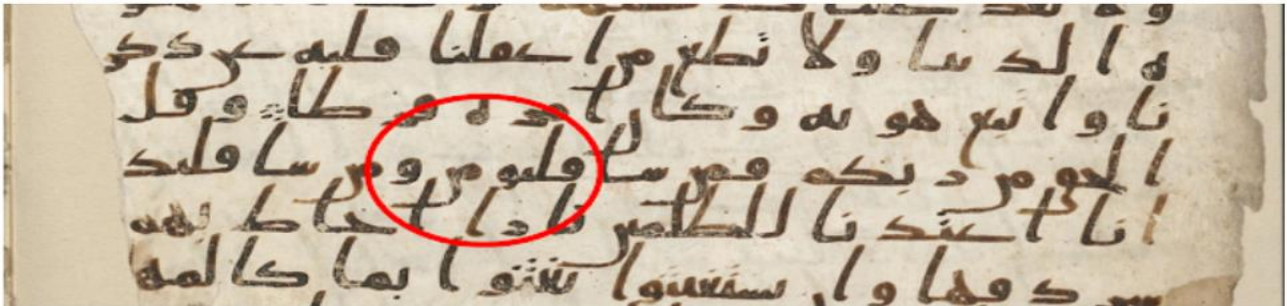 ه الدنيا ولا تطع من اغفلنا قلبه عن ذكر
نا واتبع هويه وكان امره فرطا وقل
الحق من ربكم فمن شا فليومن ومن شا فليك
انا اعتدنا للظلمين نارا احاط بهم
سردقها وان يستغيثوا يغثوا بما كالمه